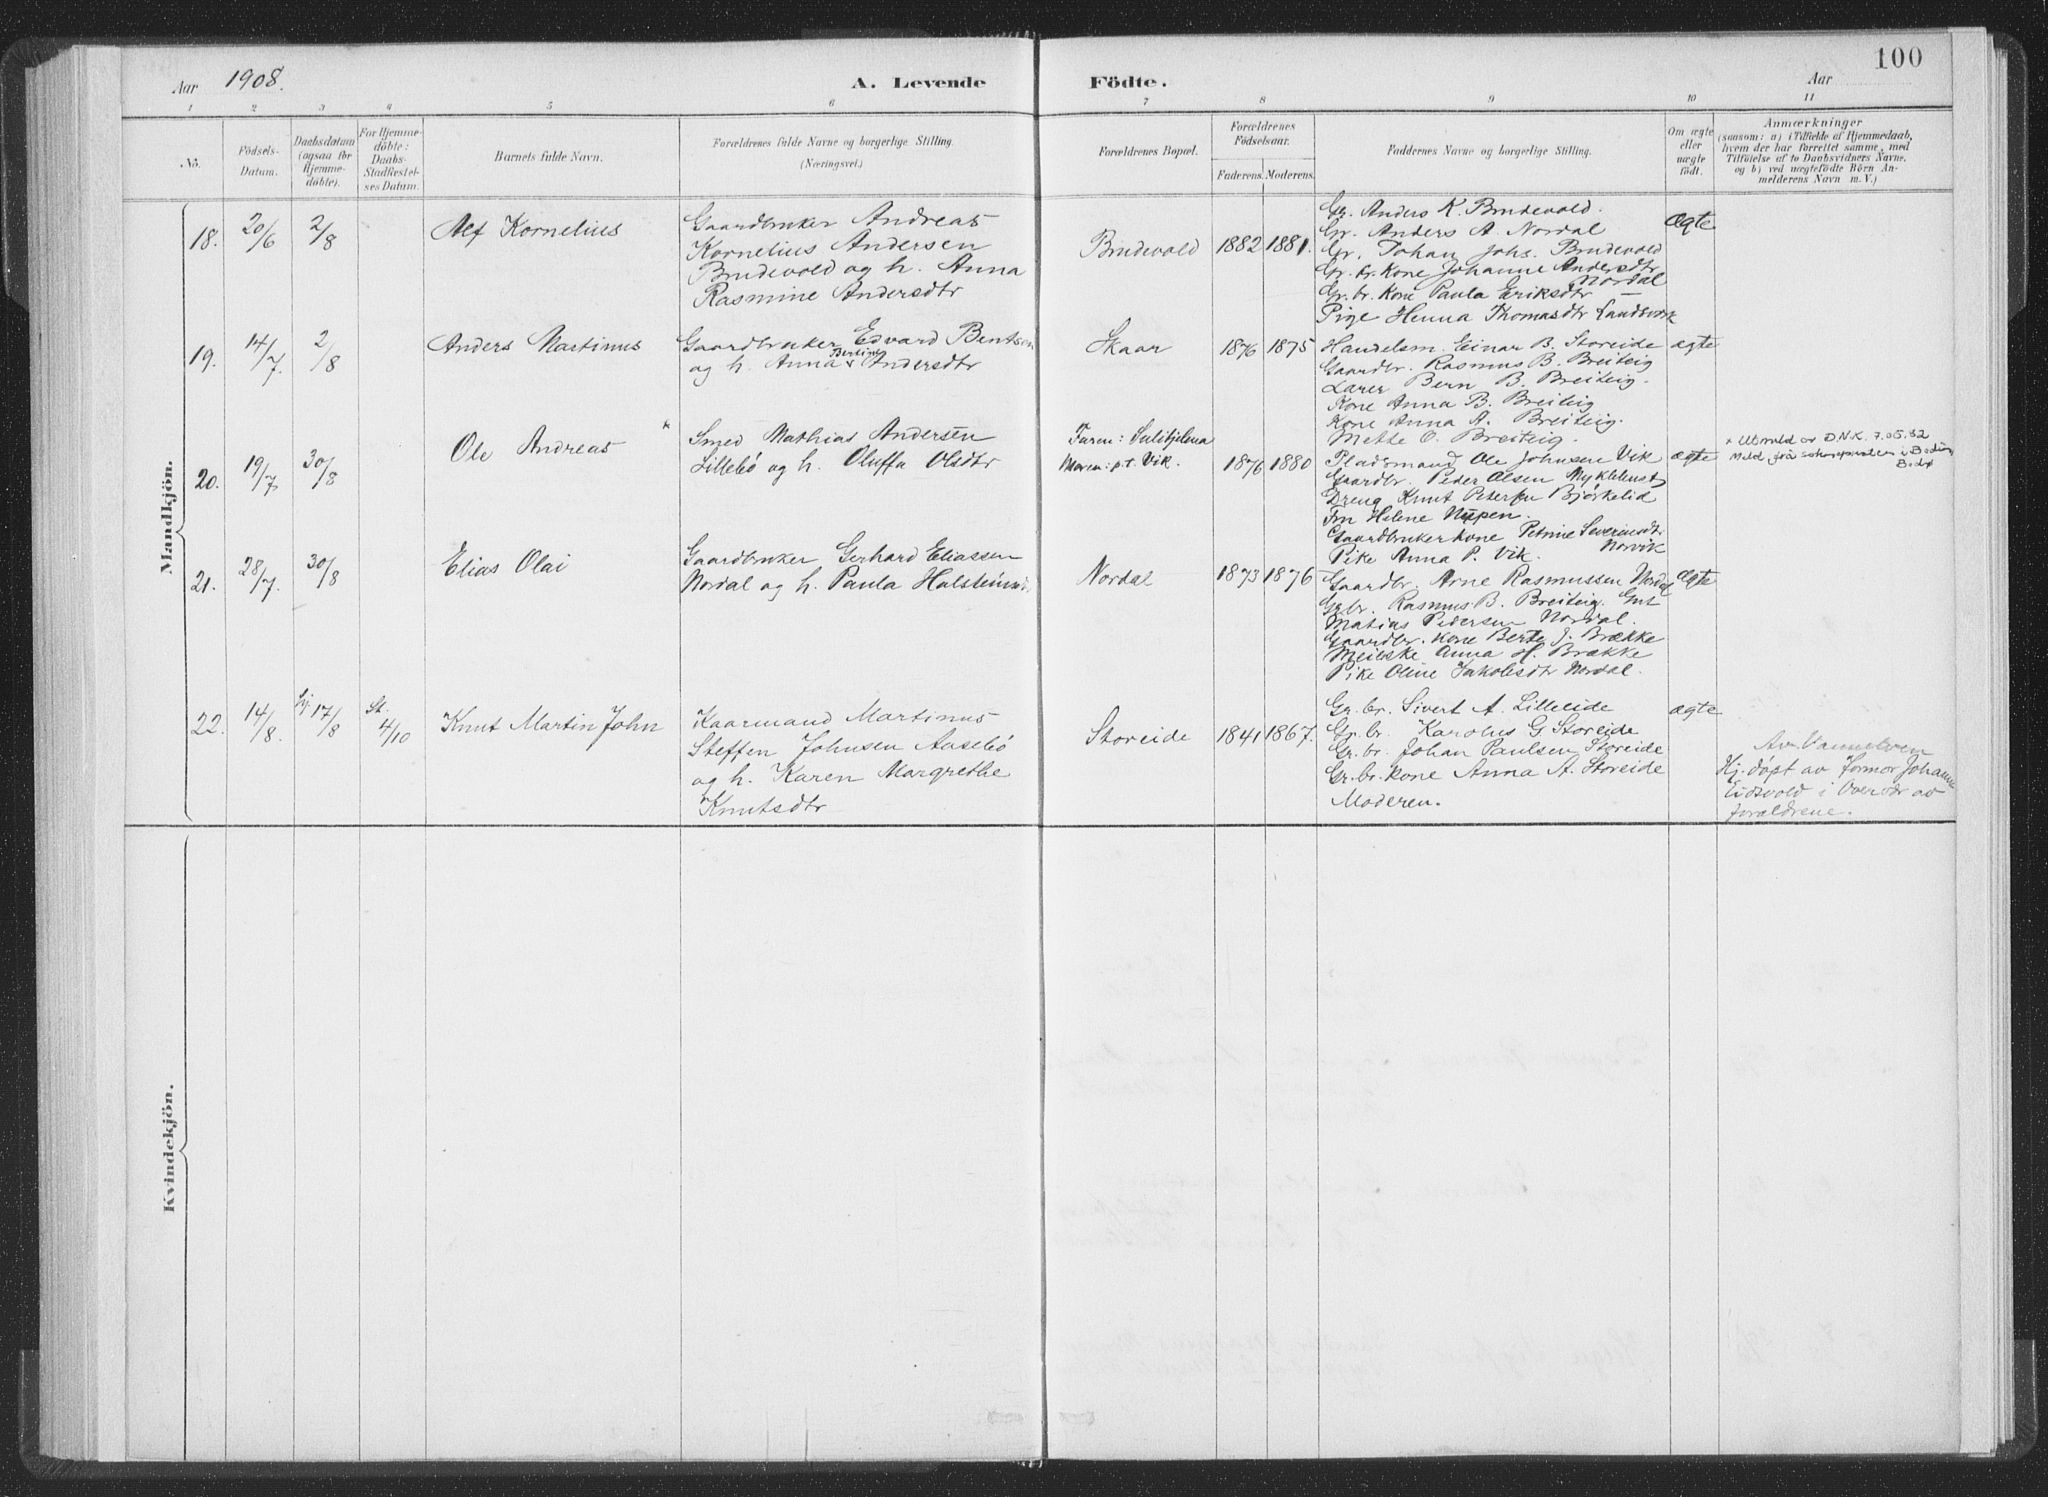 100
Aar 1908.
A. Levende Födte.
Aar
1 2 3 4 5 6 7 8 9 10 11
No.
Födsels-Datum.
Daabsdatum (ogsaa for Hjemme-döbte).
For Hjemme-döbte: Daabs-Stadfæstel-ses Datum.
Barnets fulde Navn.
Forældrenes fulde Navne og borgerlige Stilling. (Næringsvei.)
Forældrenes Bopæl.
Forældrenes Födselsaar.
Faderens. Moderens.
Faddernes Navne og borgerlige Stilling.
Om ægte eller uægte født.
Anmærkninger
(saasom: a) i Tilfælde af Hjemmedaab,
hvem der har forrettet samme, med
Tilföielse af to Daabsvidners Navne,
og b) ved uægtefödte Börn An-
melderens Navn m. V.)
Mandkjön.
18. 20/6 2/8 Alf Kornelius
Gaardbruker Andreas
Kornelius Andersen
Brudevold og h. Anna
Rasmine Andersdtr
Brudevold 1882 1881.
Gr. Anders K. Brudevold.
Gr. Anders A. Nordal
Gr. Johan Johs. Brudevold
Gr. br. Kone Johanne Andersdtr
Nordal
Gr. br. Kone Paula Eriksdtr —
Pige Henna Thomasdtr Landsverk
Ægte
19. 14/7. 2/8 Anders Martinus
Gaardbruker Edvard Bentsen
og h. Anna Bertine Andersdtr
Skaar 1876 1875
Handelsm. Einar B. Storeide
Gaardbr. Rasmus B. Breiteig
Lærer Bern B. Breiteig.
Kone Anna B. Breiteig
Kone Anna A. Breiteig.
Mette O. Breiteig.
ægte
20. 19/7 30/8 Ole Andreas x
Smed Mathias Andersen
Lillebö og h. Oluffa Olsdtr
Faren: Sulitjelma
Moren: p.t. Vik. 1876 1880
Pladsmand Ole Johnsen Vik
Gaardbr. Peder Olsen Myklebust
Dreng Knut Petersen Bjørkelid
Fru Helene Nupen.
Gaardbrukerkone Petrine Severinsdtr
Norvik
Pike Anna P. Vik.
ægte
x Utmeldt av D.N.K. 7.05.32
Meld. frå soknepresten i Bodin,
Bodø
21. 28/7. 30/8 Elias Olai
Gaardbruker Gerhard Eliassen
Nordal og h. Paula Halsteinsd.
Nordal 1873 1876
Gaardbr. Arne Rasmussen Nordal
Gr.br. Rasmus B. Breiteig. Gut
Matias Pedersen Nordal.
Gaardbr. kone Berte J. Brække
Meieske Anna H. Brække
Pike Oline Jakobsdtr Nordal.
Ægte
22. 14/8. Hj. 17/8 St. 4/10 Knut Martin John
Kaarmand Martinus
Steffen Johnsen Aasebö
og h. Karen Margrethe
Knutsdtr
Storeide 1841 1867.
Gr. br. Sivert A. Lilleeide
Gr. br. Karolus G Storeide
Gr. br. Johan Paulsen Storeide
Gr. br. kone Anna A. Storeide
Moderen.
ægte
Av Vannelven
Hj. døpt av formor Johanne
Eidsvold i Overvær av
forældrene.
Kvindekjön.